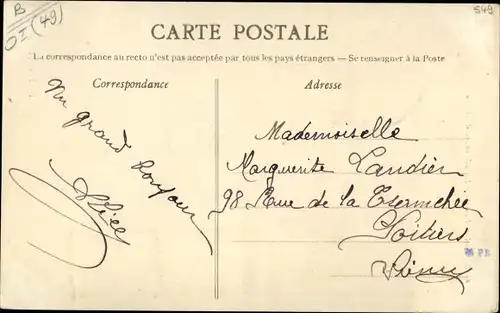 B
OI (49)
549
CARTE POSTALE
La correspondance au recto n'est pas acceptée par tous les pays étrangers — Se renseigner à la Poste
Correspondance
Adresse
Un grand bonjour
Mademoiselle
Marguerite Landier
98 Rue de la
Poitiers